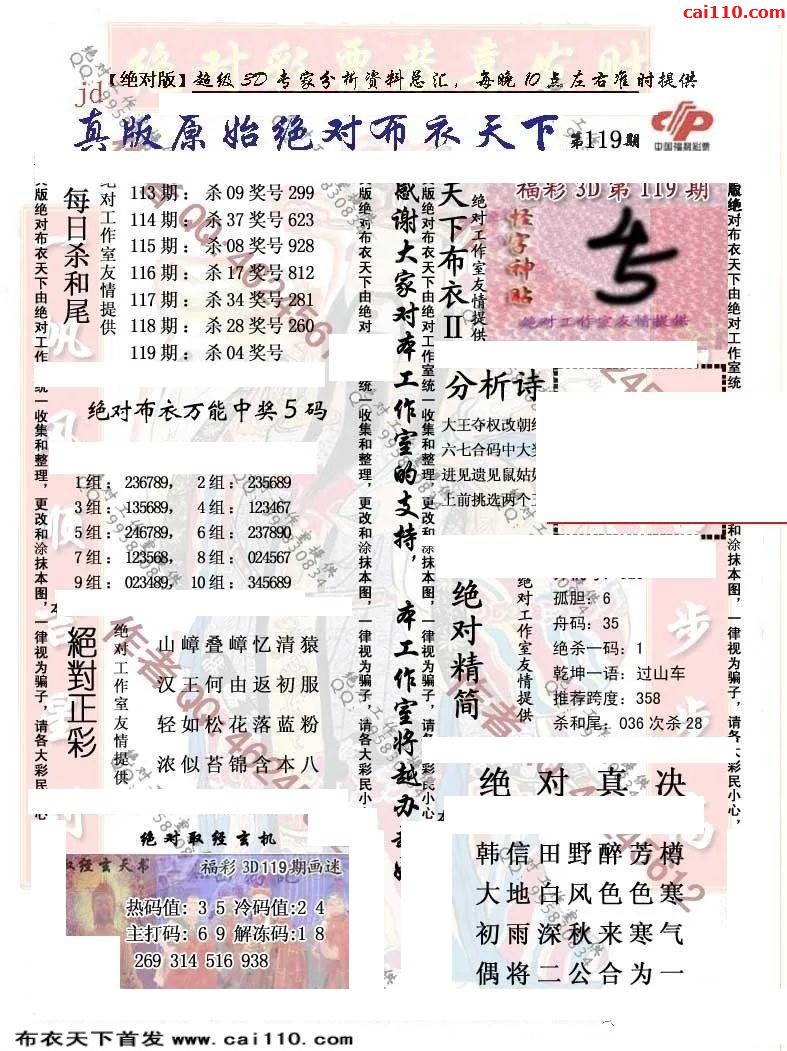 cai110.com
【绝对版】超级3D专家分析资料总汇，每晚10点左右准时提供
jd
真版原始绝对布衣天下 第119期
中国福利彩票
每日杀和尾
绝对工作室友情提供
113期：杀09奖号299
114期：杀37奖号623
115期：杀08奖号928
116期：杀17奖号812
117期：杀34奖号281
118期：杀28奖号260
119期：杀04奖号
绝对布衣万能中奖5码
1组：236789，2组：235689
3组：135689，4组：123467
5组：246789，6组：237890
7组：123568，8组：024567
9组：023489，10组：345689
絕對正彩
绝对工作室友情提供
山嶂叠嶂忆清猿
汉王何由返初服
轻如松花落蓝粉
浓似苔锦含本八
绝对取经玄机
取经玄天书
福彩3D119期画迷
热码值：35冷码值:24
主打码：69解冻码:18
269 314 516 938
版绝对布衣天下由绝对工作室统一收集和整理，更改和涂抹本图，一律视为骗子，请各大彩民小心
感谢大家对本工作室的支持，本工作室将越办
天下布衣II
绝对工作室友情提供
福彩3D第119期
怪字神贴
绝对工作室友情提供
分析诗
大王夺权改朝
六七合码中大
进见遗见鼠姑
上前挑选两个
绝对精简
绝对工作室友情提供
孤胆：6
舟码：35
绝杀一码：1
乾坤一语：过山车
推荐跨度：358
杀和尾：036次杀28
绝对真决
韩信田野醉芳樽
大地白风色色寒
初雨深秋来寒气
偶将二公合为一
布衣天下首发 www.cai110.com